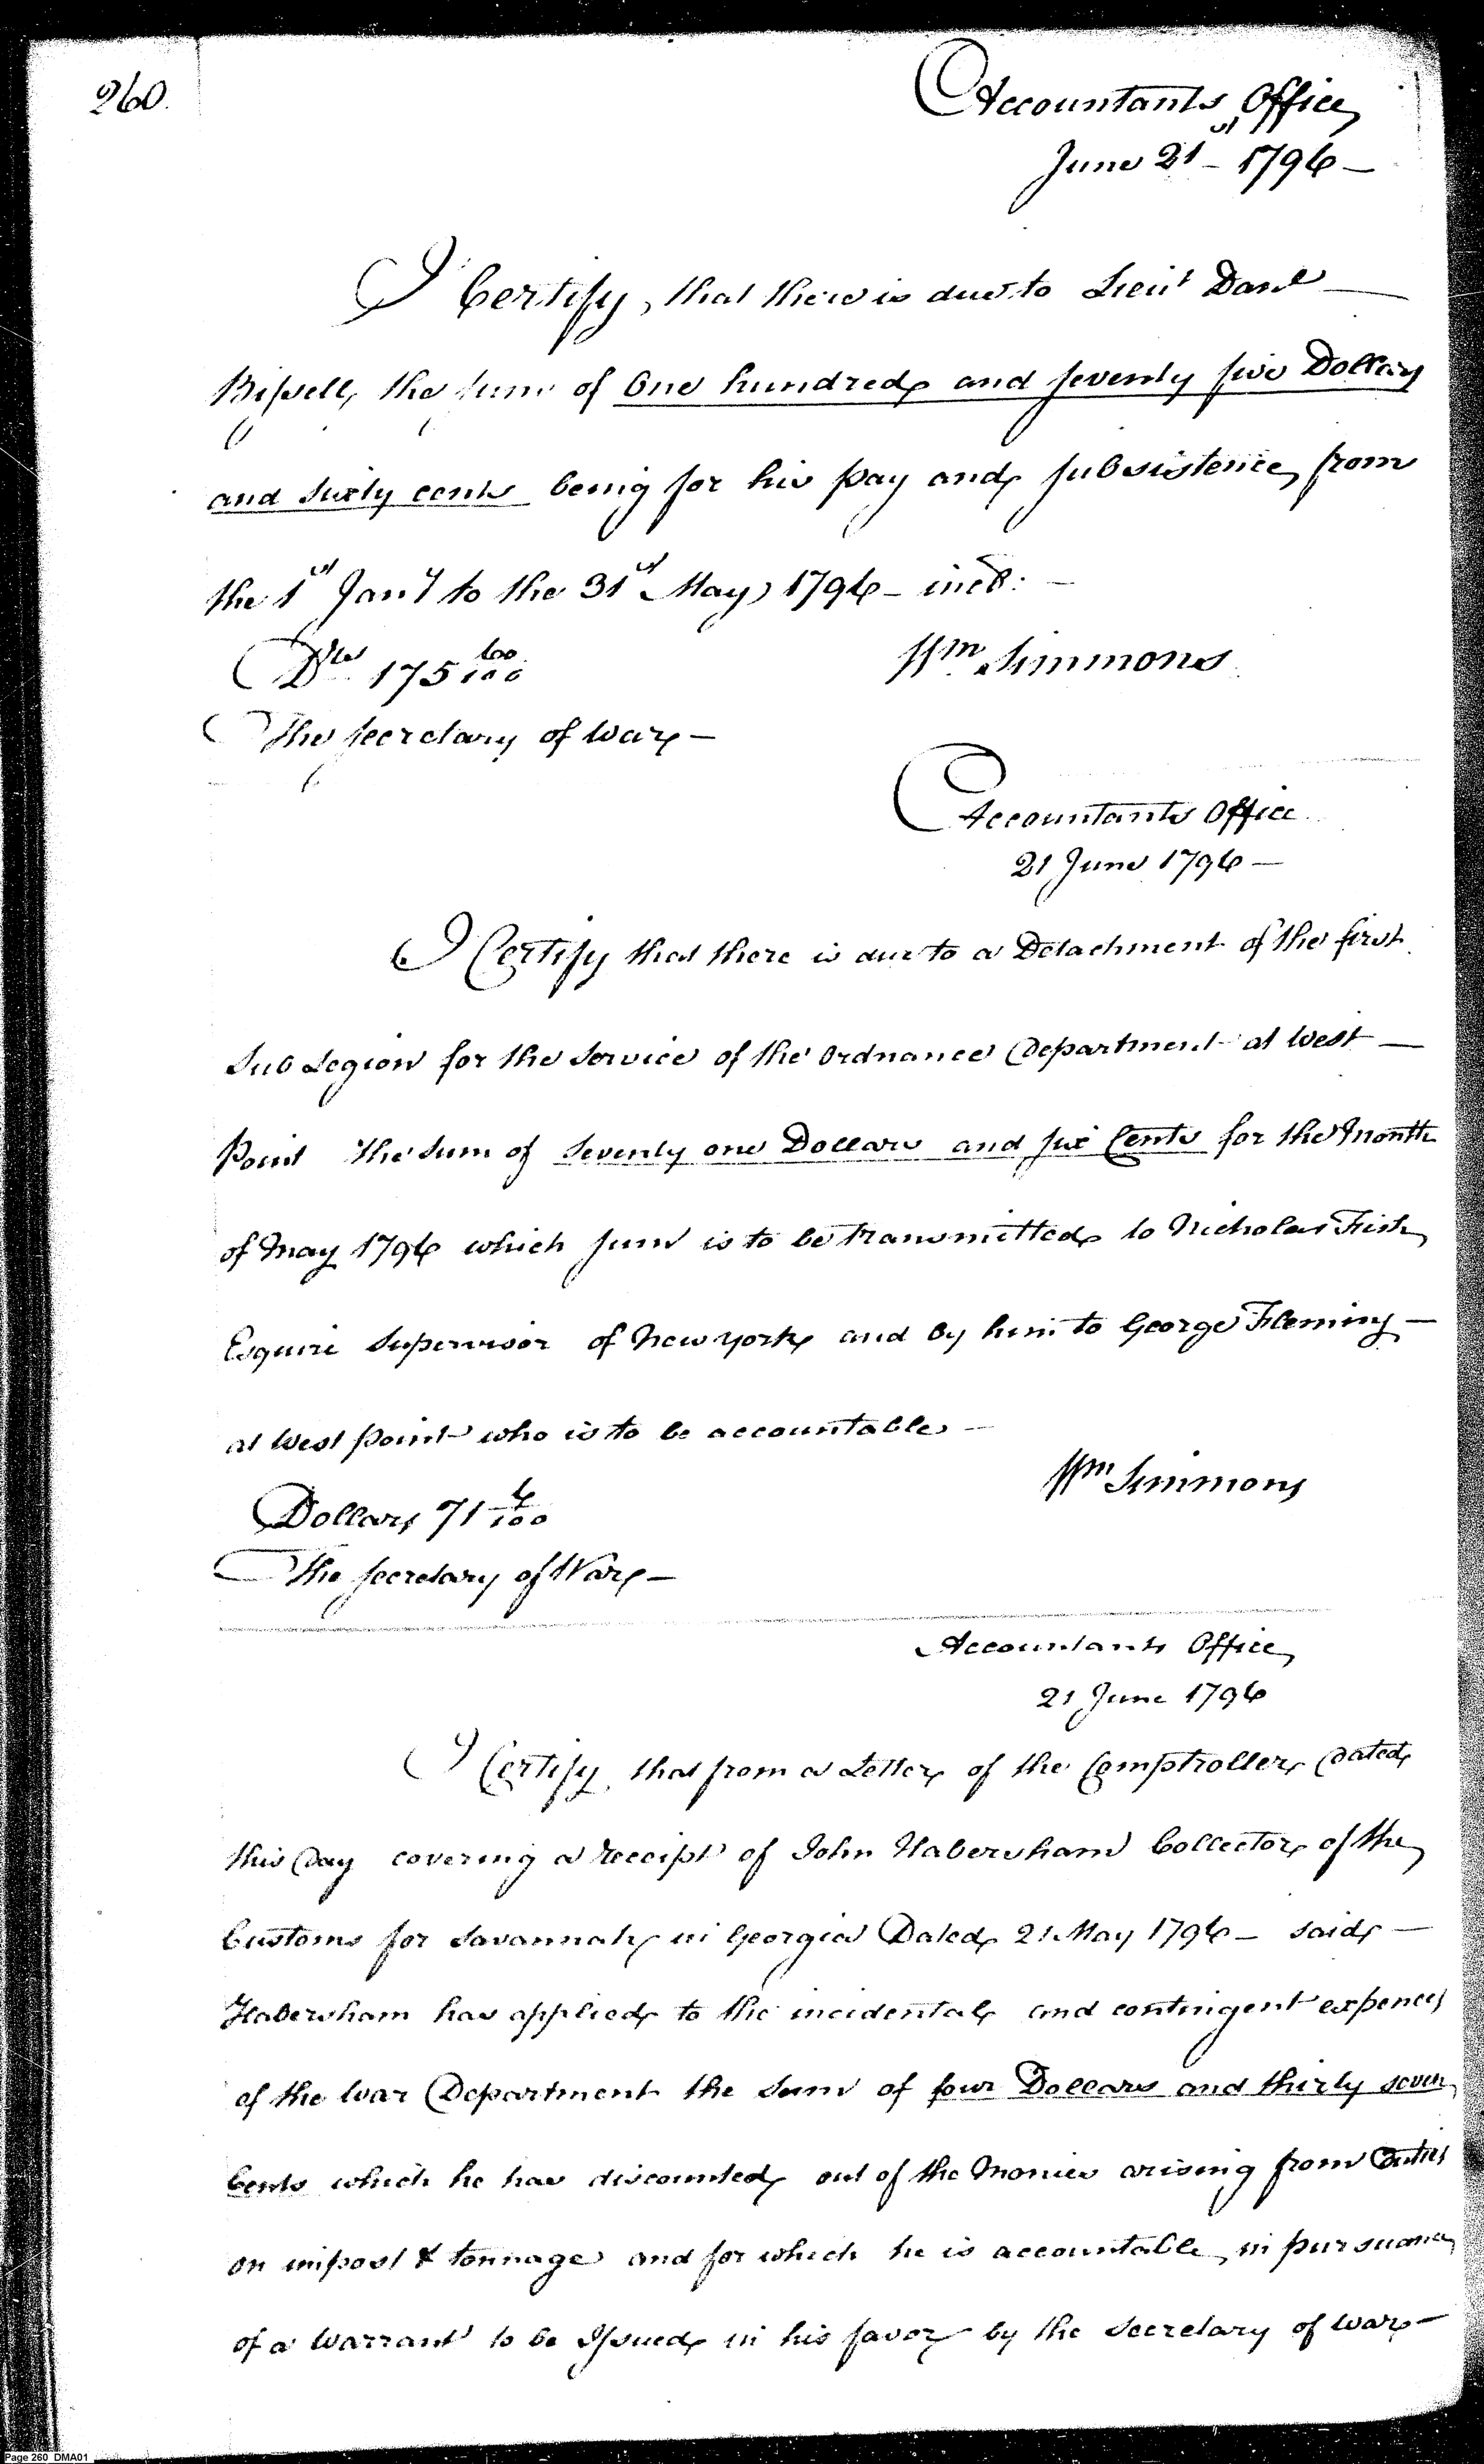 260.
Accountants Office
June 21st - 1796 -
I Certify, that there is due to Lieut Danl -
Bissell, the sum of One hundred and seventy five Dollars
and sixty cents being for his pay and subsistence, from
the 1st Jany to the 31st May 1796 - incl: -
Dlls 175 60/100 Wm Simmons
The Secretary of War -
Accountants Office
21 June 1796 -
I Certify that there is due to a Detachment of the first
Sub Legion for the service of the Ordnance Department at West -
Point the sum of seventy one Dollars and six Cents for the Month
of May 1796 which sum is to be transmitted to Nicholas Fish
Esquire Supervisor of New york and by him to George Fleming -
at West point who is to be accountable -
Wm Simmons
Dollars 71 6/100
The Secretary of War -
Accountants Office
21 June 1796
I Certify, that from a Letter of the Comptroller Dated
this Day covering a receipt of John Habersham Collector of the
Customs for Savannah in Georgia Dated 21 May 1796 - said -
Habersham has applied to the incidental and contingent expences
of the War Department the sum of four Dollars and thirty seven
Cents which he has discounted out of the Monies arising from Duties
on impost & tonnage and for which he is accountable, in pursuance
of a Warrant to be Issued in his favor by the Secretary of War -
Page 260 DMA01